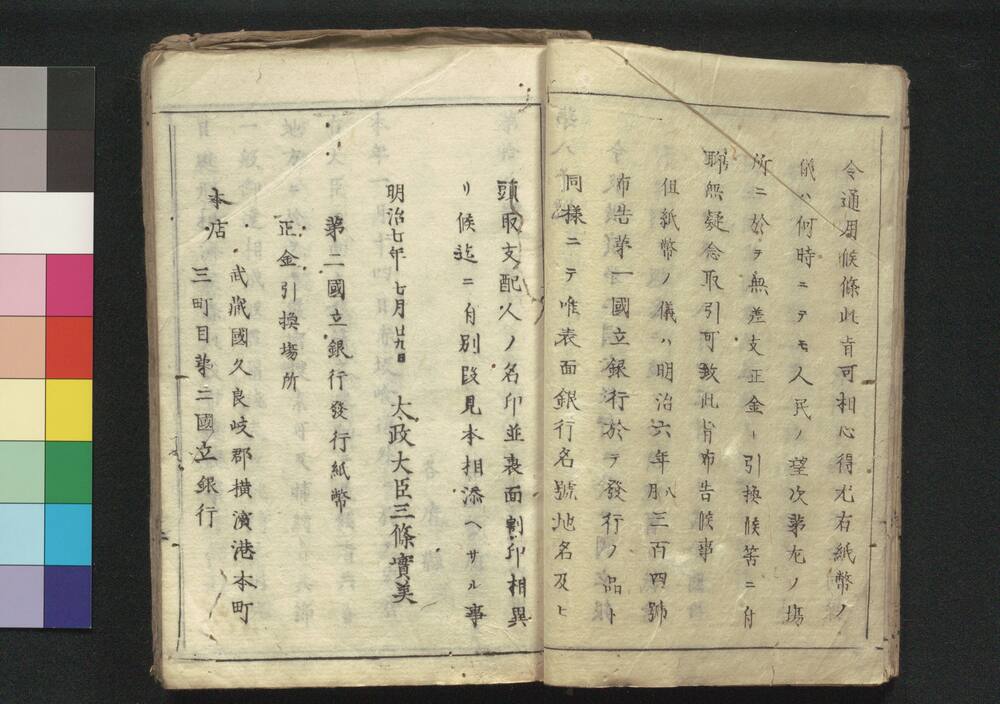 令通用候條此旨可相心得尤右紙幣ノ
儀ハ何時ニテモ人民ノ望次第左ノ場
所ニ於テ無差支正金ト引換候筈ニ付
聊無疑念取引可致此旨布告候事
但紙幣ノ儀ハ明治六年八月三百四號
布告第一國立銀行於テ發行ノ品ト
同様ニテ唯表面銀行名號地名及ヒ
頭取支配人ノ名印並裏面割印相異
リ候迄ニ付別段見本相添ヘサル事
明治七年七月廿九日
太政大臣三條實美
第二國立銀行發行紙幣
正金引換場所
本店
武蔵國久良岐郡横濱港本町
三町目第二國立銀行